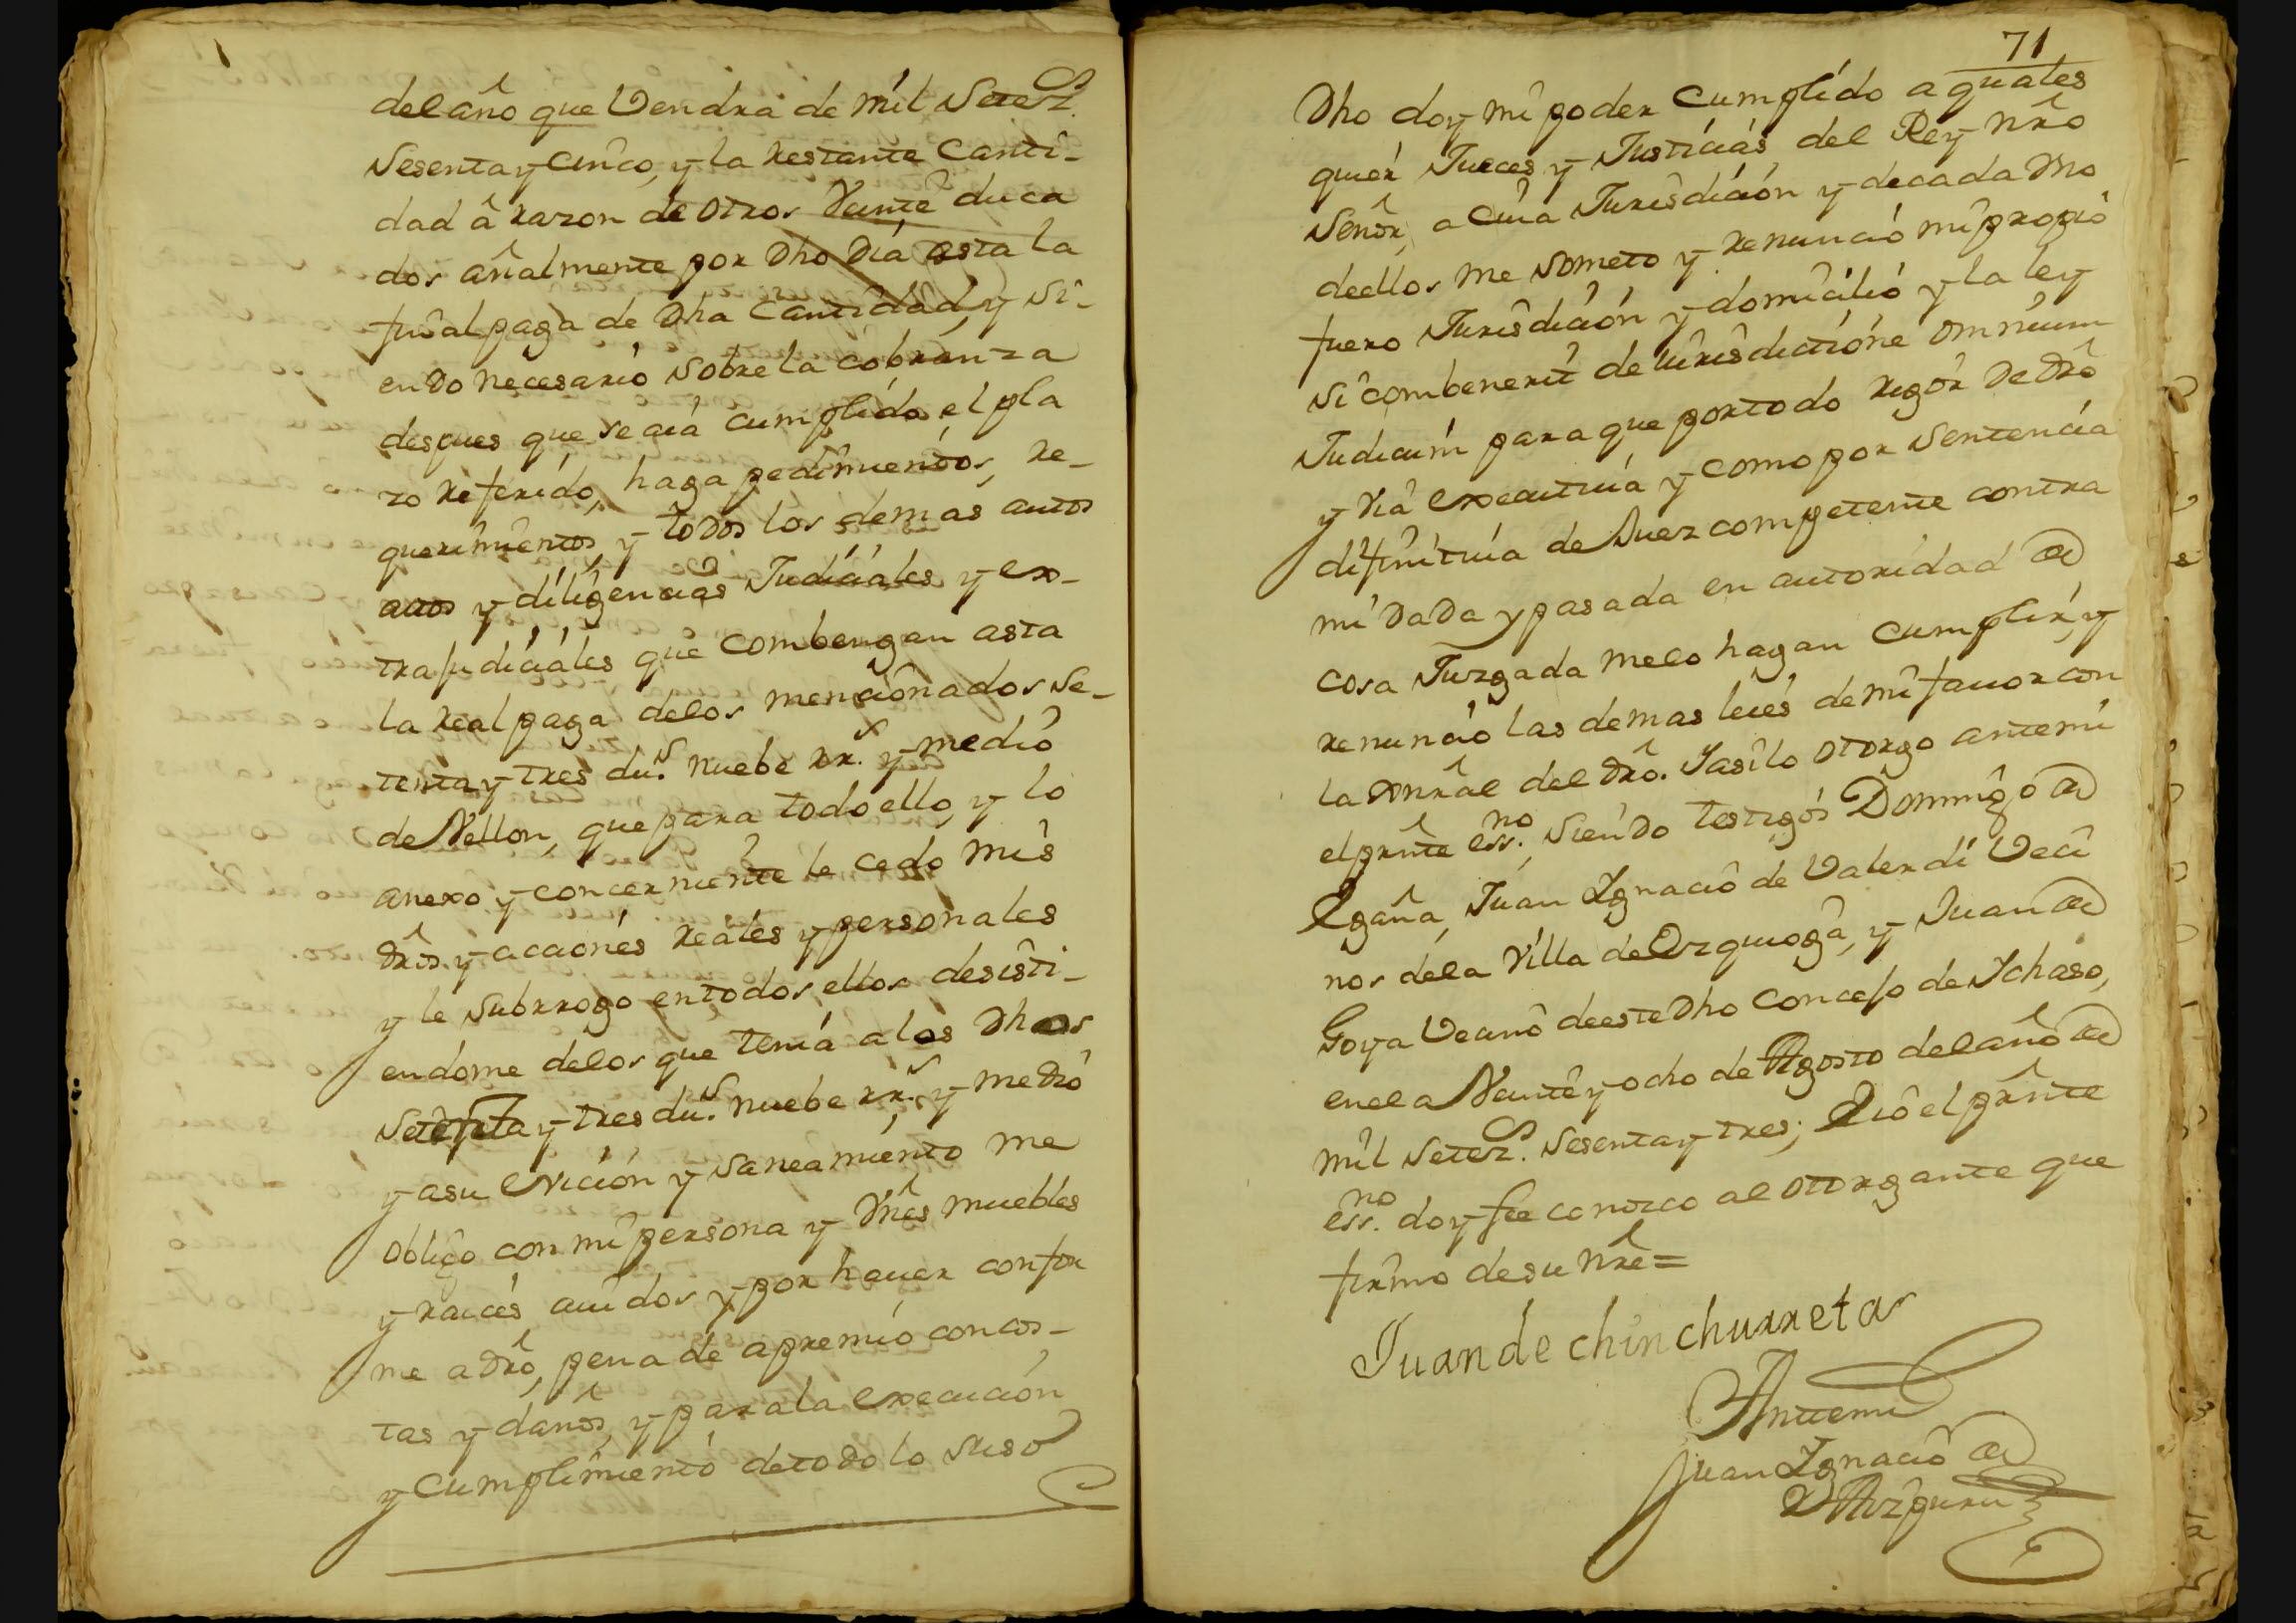 del año que Vendra de mil Setez.
Sesenta y Cinco, y la restante Canti-
dad â razon de otros Veinte duca
dos añalmente por Dho Dia asta la
final paga de Dha Cantidad, y si-
endo necesario sobre la cobranza
despues que se aia cumplido el pla
zo referido, haga pedimientos, re-
querimientos, y todos los demas autos
autos y diligencias Judiciales y ex-
trajudiciales que combengan asta
la real paga delos mencionados se-
tenta y tres du.s nuebe rr.s y medio
de Vellon, que para todo ello, y lo
anexo y concerniente le cedo mis
drôs y acciones reales y personales
y le subrrogo en todos ellos desisti-
endome delos que tenia a los Dhos
Setenta y tres du.s nuebe rr.s y medio
y asu evicion y Saneamiento me
obligo con mi persona y Vnês muebles
y raices, auidos y por hauer confor
me a drô, pena de apremio con cos-
tas y daños, y para la execucion
y cumplimiento de todo lo suso
71
Dho doy mi poder cumplido a quales
quier Jueces y Justicias del Rey nrô
Señor, a cuia Jurisdicion y de cada Vno
dellos me someto y renuncio mi propio
fuero Jurisdicion y domicilio y la ley
si combenerit de iurisdictione omnium
Judicum para que por todo rigor de drô
y via executiuia y como por sentencia
difinitiuia de Juez competente contra
mi dada y pasada en autoridad de
cosa Juzgada melo hagan cumplir, y
renuncio las demas leies de mi fauor con
la xnrâl del drô. Y asi lo otorgo ante mi
el prînte ess.no, siendo testigos Domingo de
Egaña, Juan Ignacio de Valerdi Veci
nos dela Villa de Vrquioga, y Juan de
Goya Vecino de este Dho Concejo de Ychaso,
en el a Veinte y ocho de Agosto del año de
mil Setez. Sesenta y tres; E Yo el prînte
ess.no doy fee conozco al otorgante que
firmo de su nrê =
Juan de chinchurreta
Ante mi
Juan Ignacio de
Aizpuru